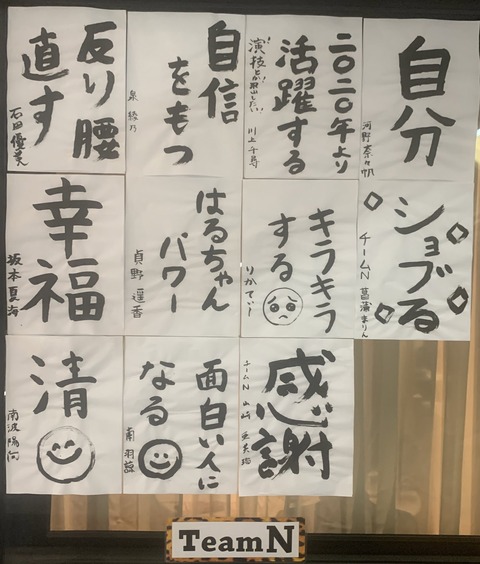 自分
河野奈々帆
二〇二〇年より
活躍する
川上千尋
自信
をもつ
泉 綾乃
反り腰
直す
石田優美
ショブる
チームN 菖蒲まりん
キラキラ
する
りかてぃー
はるちゃん
パワー
貞野遥香
幸福
坂本夏海
感謝
チームN 山崎亜美瑠
面白い人に
なる
南羽諒
清
南波陽向
TeamN